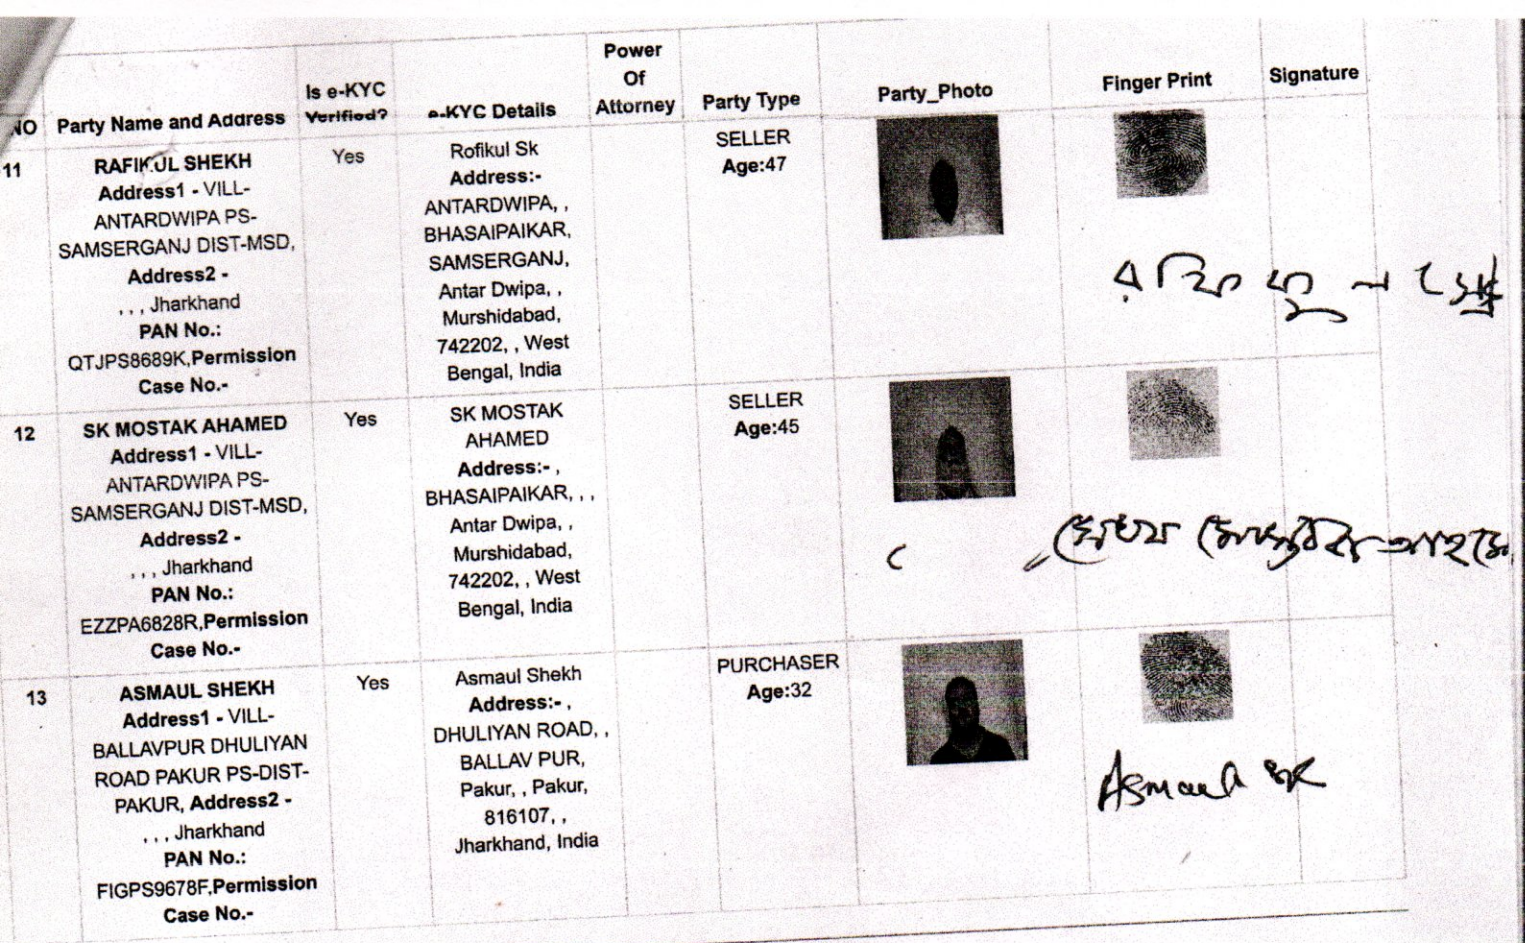 NO Party Name and Address Is e-KYC Verified? e-KYC Details Power Of Attorney Party Type Party_Photo Finger Print Signature
11
RAFIKUL SHEKH
Address1 - VILL-
ANTARDWIPA PS-
SAMSERGANJ DIST-MSD,
Address2 -
, , , Jharkhand
PAN No.:
QTJPS8689K,Permission
Case No.-
Yes
Rofikul Sk
Address:-
ANTARDWIPA, ,
BHASAIPAIKAR,
SAMSERGANJ,
Antar Dwipa, ,
Murshidabad,
742202, , West
Bengal, India
SELLER
Age:47
12
SK MOSTAK AHAMED
Address1 - VILL-
ANTARDWIPA PS-
SAMSERGANJ DIST-MSD,
Address2 -
, , , Jharkhand
PAN No.:
EZZPA6828R,Permission
Case No.-
Yes
SK MOSTAK
AHAMED
Address:- ,
BHASAIPAIKAR, , ,
Antar Dwipa, ,
Murshidabad,
742202, , West
Bengal, India
SELLER
Age:45
13
ASMAUL SHEKH
Address1 - VILL-
BALLAVPUR DHULIYAN
ROAD PAKUR PS-DIST-
PAKUR, Address2 -
, , , Jharkhand
PAN No.:
FIGPS9678F,Permission
Case No.-
Yes
Asmaul Shekh
Address:- ,
DHULIYAN ROAD, ,
BALLAV PUR,
Pakur, , Pakur,
816107, ,
Jharkhand, India
PURCHASER
Age:32
Asmaul SK